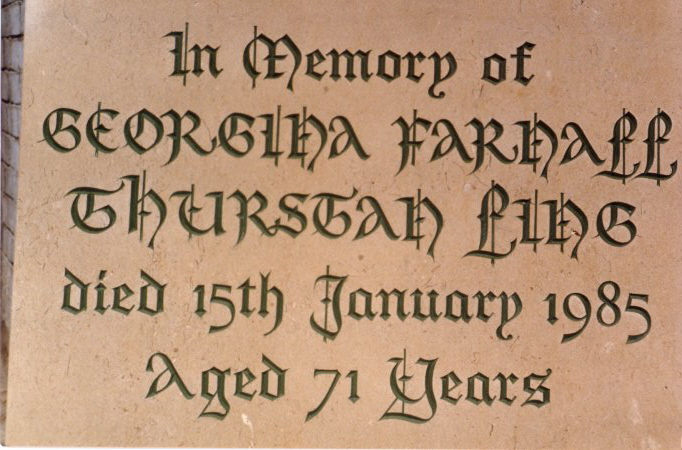 In Memory of
GEORGINA FARNALL
THURSTAN LING
died 15th January 1985
Aged 71 Years